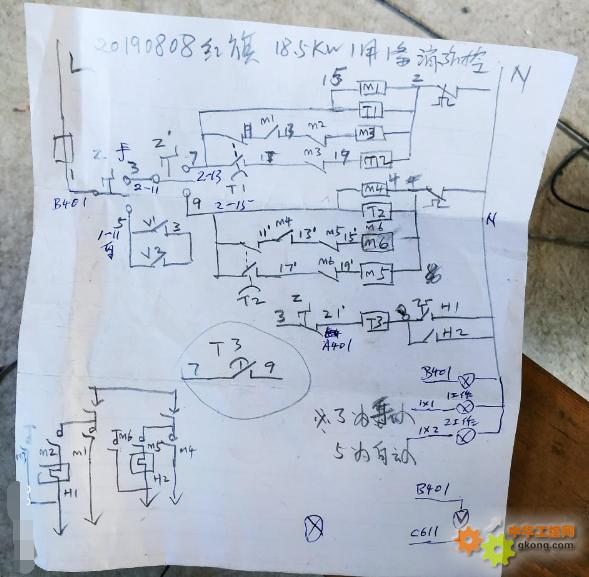 20190808红旗 18.5KW 1用1备消防控
L
15
M1
2
N
T1
M1
13
M2
M3
手
2'
7
3
2-11
2-13
T1
M3
T2
B401
9
2-15
M4
4
5
1-11
V1
3
V2
T2
M6
11'
M4
13'
M5
15'
M6
17'
M6
19'
M5
8
T2
N
3
2
21'
A401
T3
H1
H2
T3
7
9
B401
1X1
1工作
1X2
2工作
3为手动
5为自动
M2
M1
H1
M6
M5
M4
H2
B401
C611
中华工控网
gkong.com